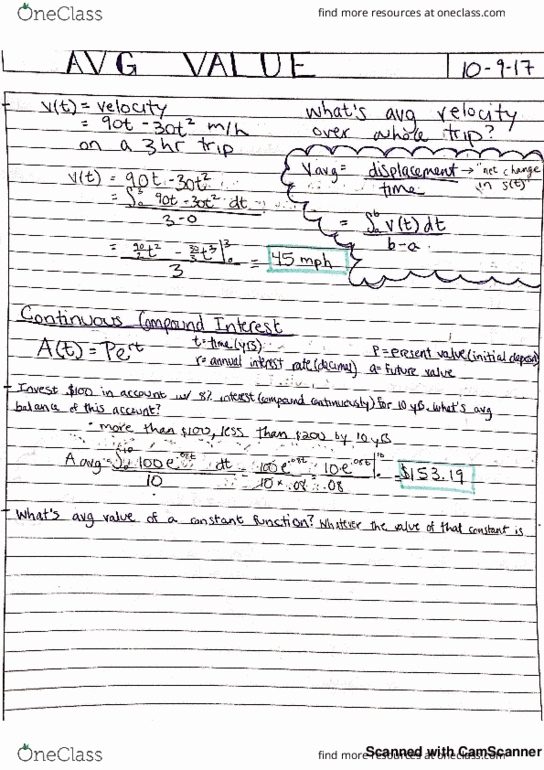 OneClass
find more resources at oneclass.com
AVG VALUE
10-9-17
v(t) = velocity
= 90t - 30t² m/h
on a 3 hr trip
what's avg velocity
over whole trip?
v(t) = 90t - 30t²
= ∫₀³ 90t - 30t² dt
3-0
= 90/2 t² - 30/3 t³ |₀³
3
= 45 mph
Vavg = displacement → "net change
time in s(t)
= ∫ₐᵇ v(t) dt
b-a
Continuous Compound Interest
A(t) = Pe^rt
t = time (yrs)
r = annual interest rate (decimal)
P = present value (initial deposit)
a = future value
- Invest $100 in account w/ 8% interest (compound continuously) for 10 yrs. what's avg
balance of this account?
• more than $100, less than $200 by 10 yrs
A avg = ∫₀¹⁰ 100e^.08t dt = 100e^.08t = 10e^.08t |₀¹⁰ = $153.19
10 10 × .08 .08
- What's avg value of a constant function? Whatever the value of that constant is
OneClass
find more resources at oneclass.com
Scanned with CamScanner